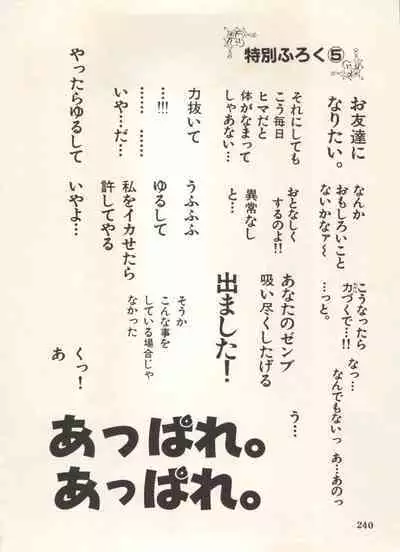 特別ふろく⑤
お友達に
なりたい。
なんか
おもしろいこと
ないかなァ〜
こうなったら
力づくで…!!
…っと。
なっ…
なんでもないっ あ…あのっ
それにしても
こう毎日
ヒマだと
体がなまって
しゃあない…
おとなしく
するのよ!!
異常なし
と…
あなたのゼンブ
吸い尽くしたげる
う…
出ました!
力抜いて
…!!!
……… ………
いや…だ…
やったらゆるして
うふふふ
ゆるして
私をイカせたら
許してやる
いやよ…
そうか
こんな事を
している場合じゃ
なかった
くっ!
あ
あっぱれ。
あっぱれ。
240